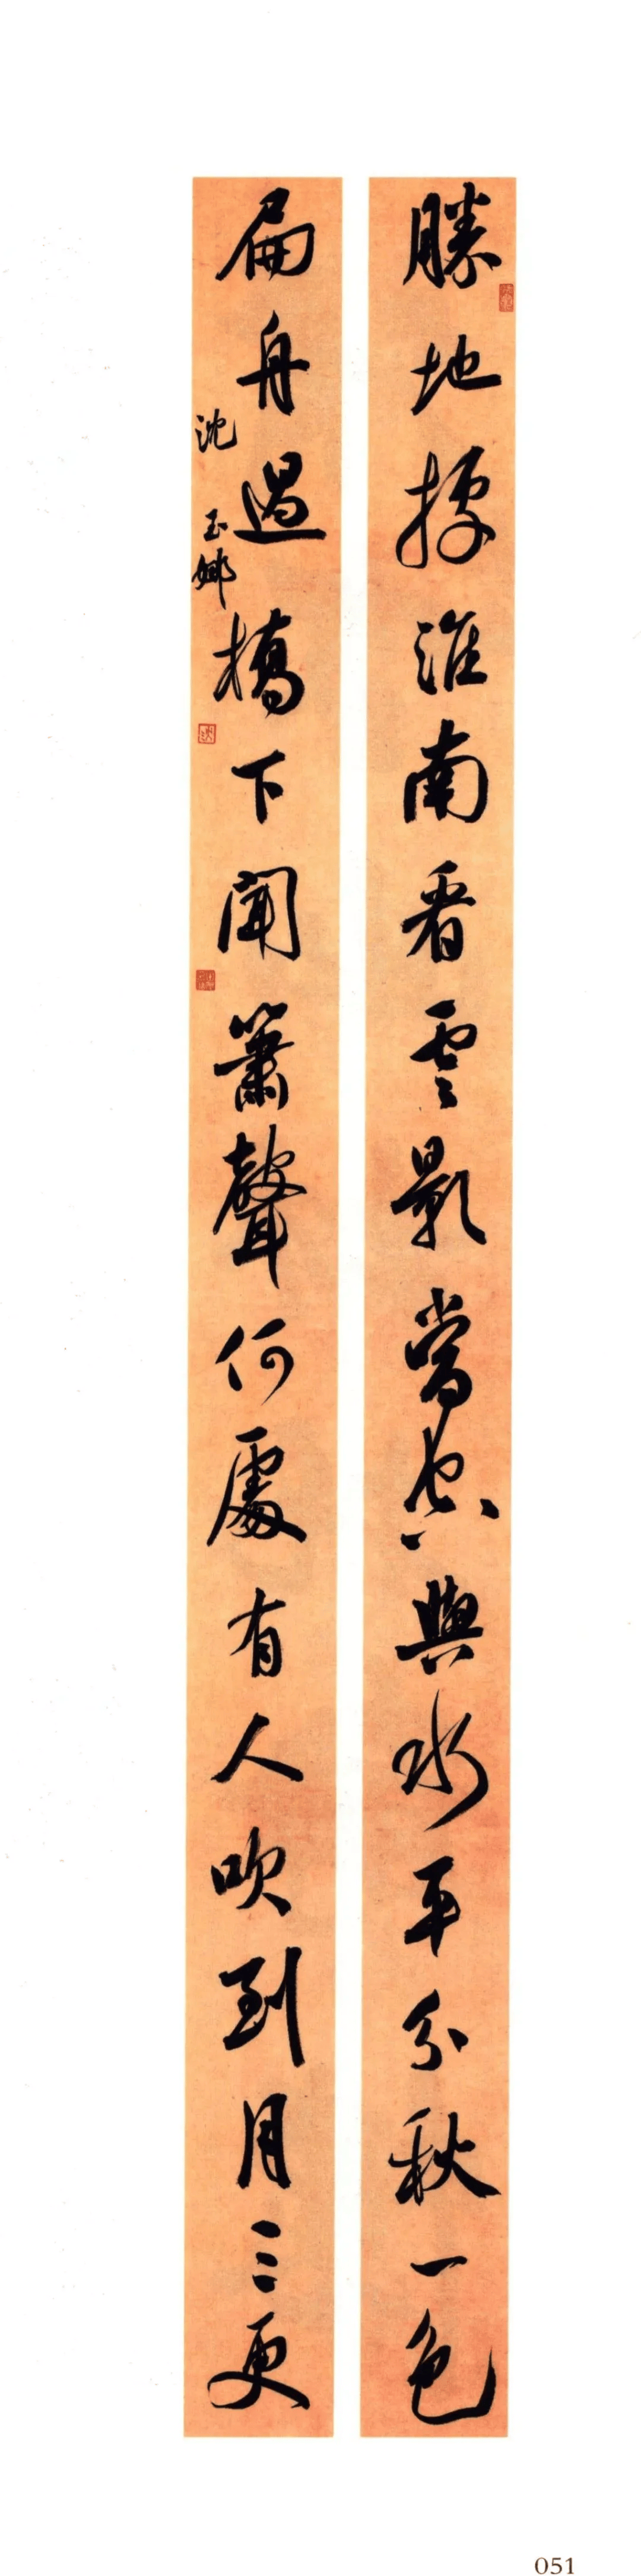 勝地據淮南看雲影當空與水平分秋一色
扁舟過橋下聞簫聲何處有人吹到月三更
沈玉娜
051